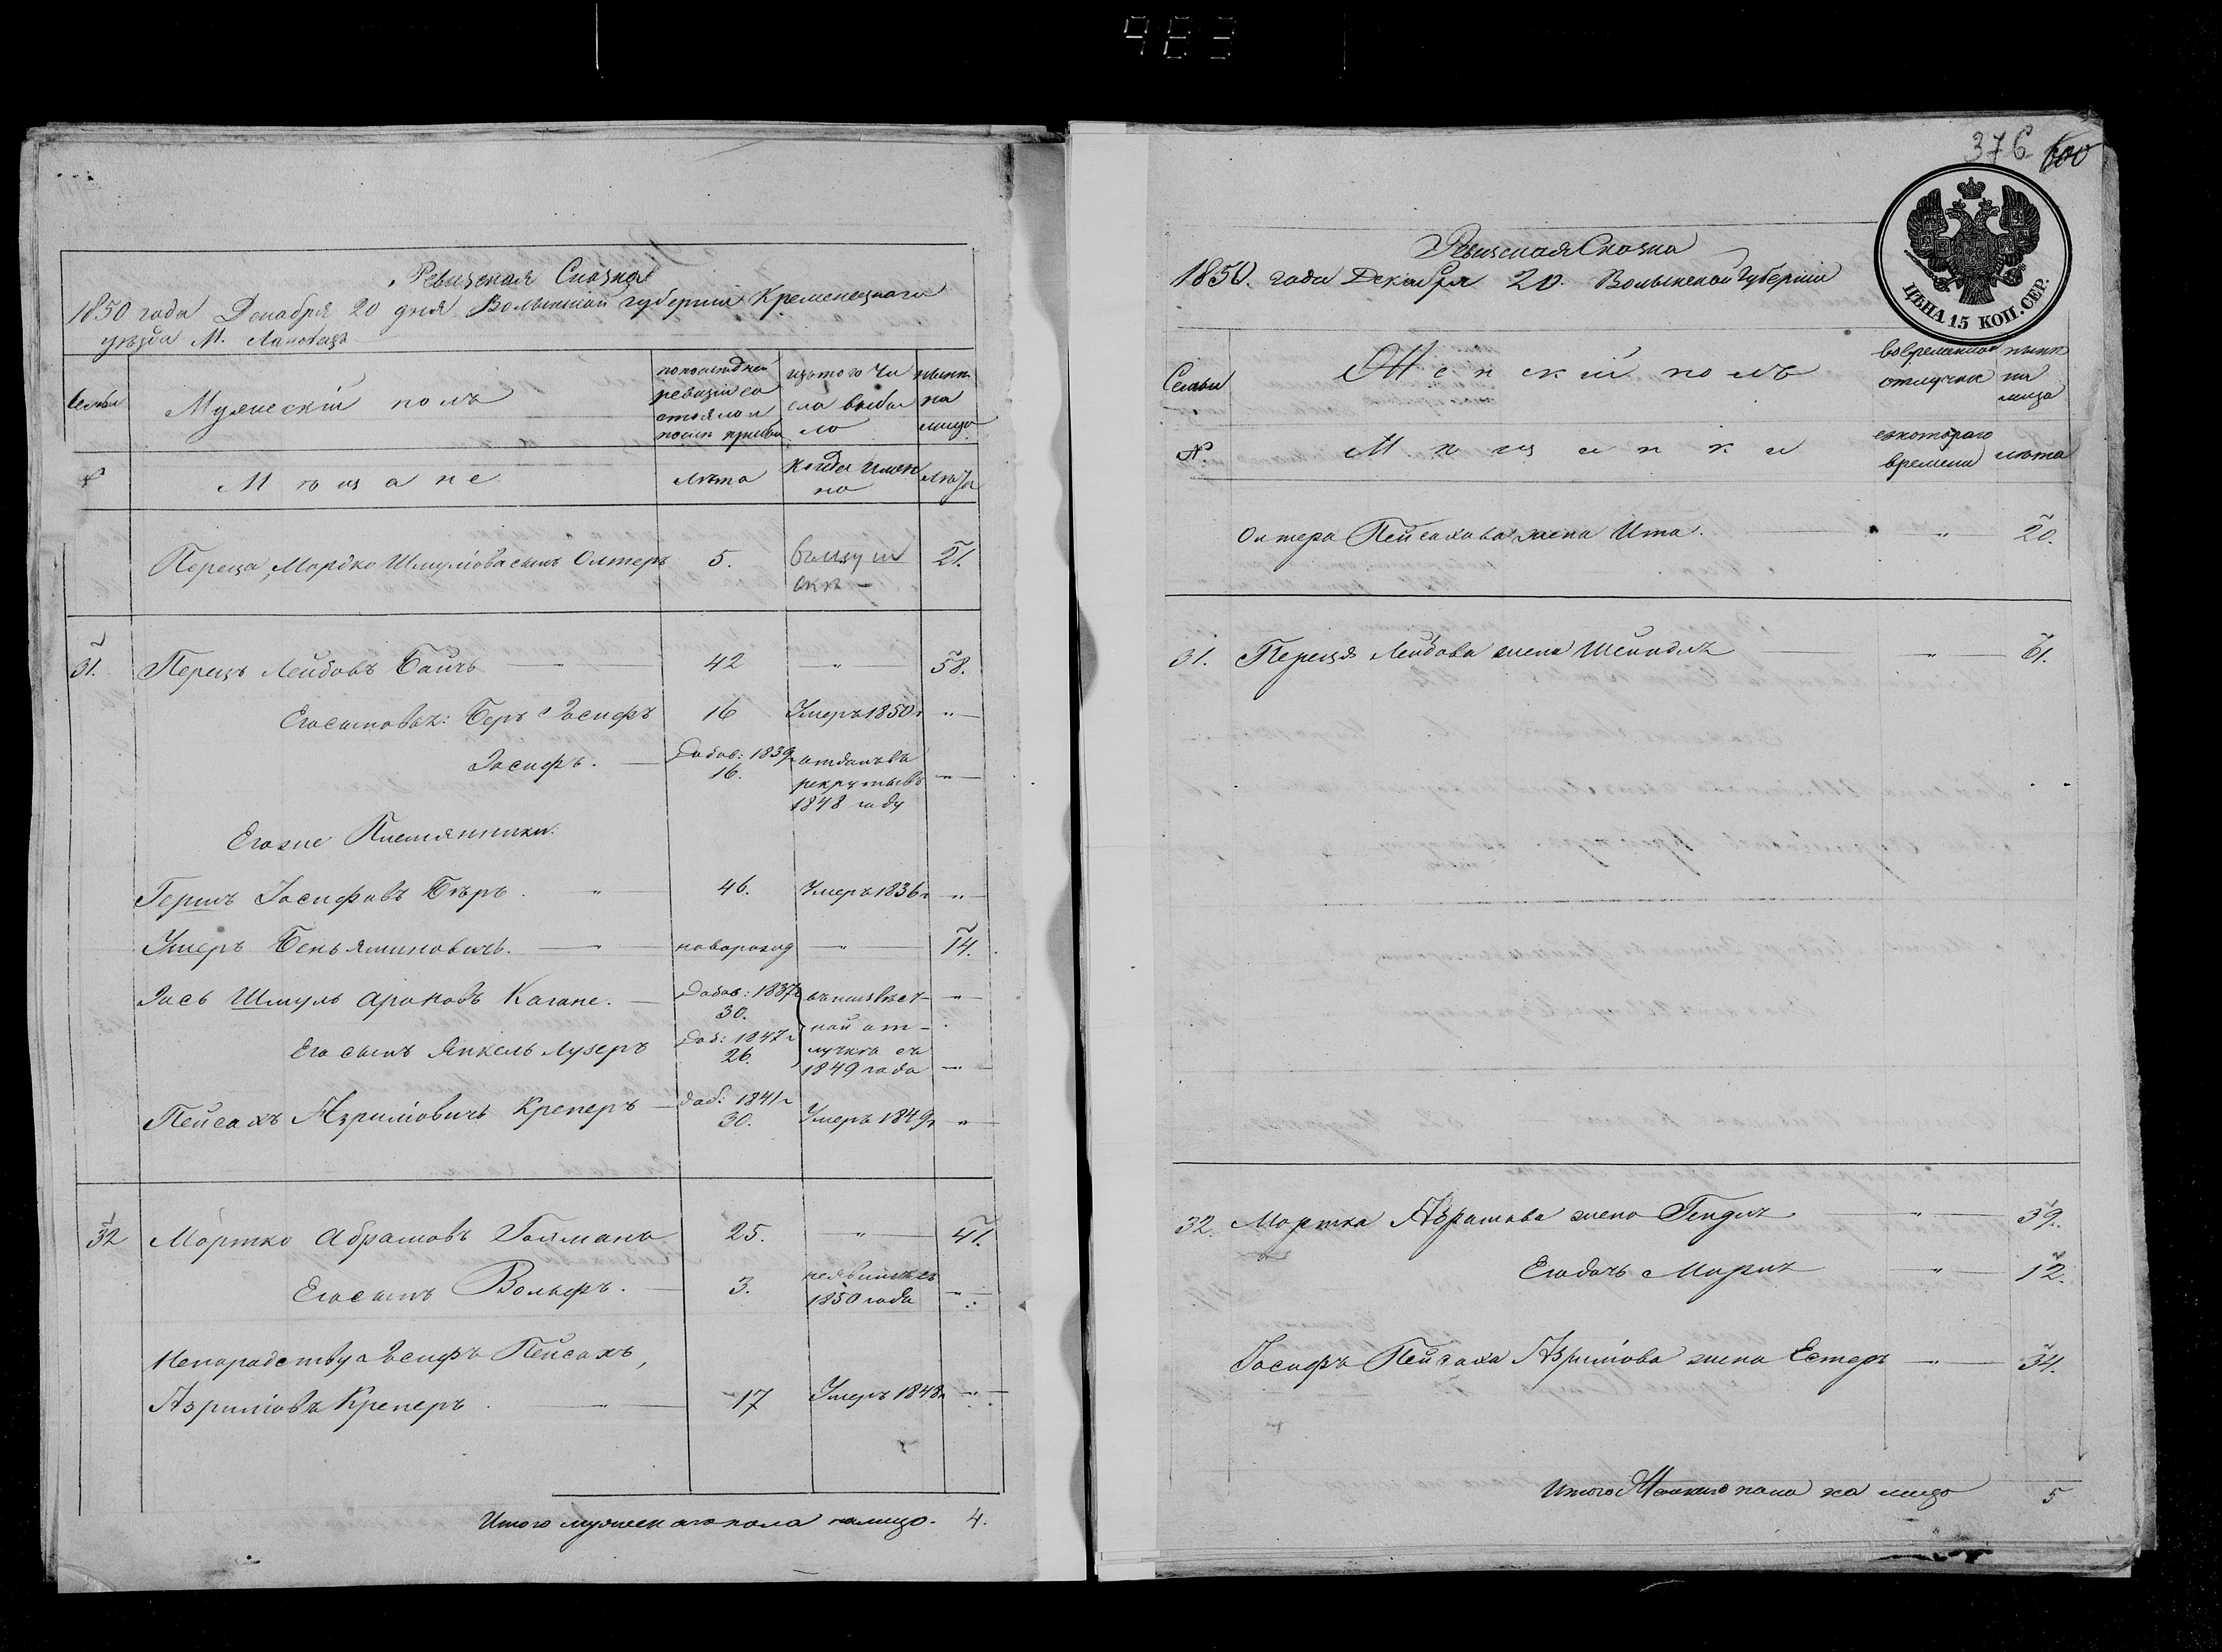 983
Ревизская Сказка
1850 года Декабря 20 дня Волынской губернии Кременецкаго
уезда М. Лановецъ
Семьи
Мужескій полъ
по последней ревизіи состояло и после прибы
изъ того числа выбыло
ныне на лицо
№
Мѣщане
лѣта
когда именно
лѣта
Переца, Мордко Шлиомова сынъ Олтеръ 5. 21.
31. Перецъ Лейбовъ Баичъ 42 " 58.
Его сыновья: Беръ Іосифъ 16 Умеръ 1850 г "
Іосифъ. Добав: 1839 16. отданъ въ рекруты въ 1848 году "
Его же Племянники.
Гершъ Іосифовъ Бѣръ. " 46. Умеръ 1836 г "
Умеръ Беньяминовичъ. " новорожд " 14.
Іось Шмуль Ароновъ Кагане. Добав: 1837 г 30. въ неизвѣст "
Его сынъ Янкель Лузеръ Доб: 1847 г 26. ной отлучкѣ съ 1849 года "
Пейсахъ Азриліовичъ Креперъ доб: 1841 г 30. Умеръ 1849 г "
32 Мортко Абрамовъ Гойманъ 25. " 41.
Его сынъ Вольфъ. 3. неявился съ 1850 года "
Непородству Іосифъ Пейсахъ,
Азриліовъ Креперъ " 17 Умеръ 1848 г "
Итого мужескаго пола на лицо. 4.
376 600
Ревизская Сказка
1850. года Декабря 20. Волынской Губерніи
ЦѢНА 15 КОП. СЕР.
Семьи
Женскій полъ
во временной отлучке
ныне на лицо
№
Мѣщанки
съ котораго времени
лѣта
Олтера Пейсахова жена Ита. " 20.
31. Переца Лейбова жена Шейндля " 61.
32. Мортка Абрамова жена Гендля " 39.
Его дочь Маря " 12.
Іосифъ Пейсаха Азриліова жена Естеръ " 34.
Итого Женскаго пола на лицо 5